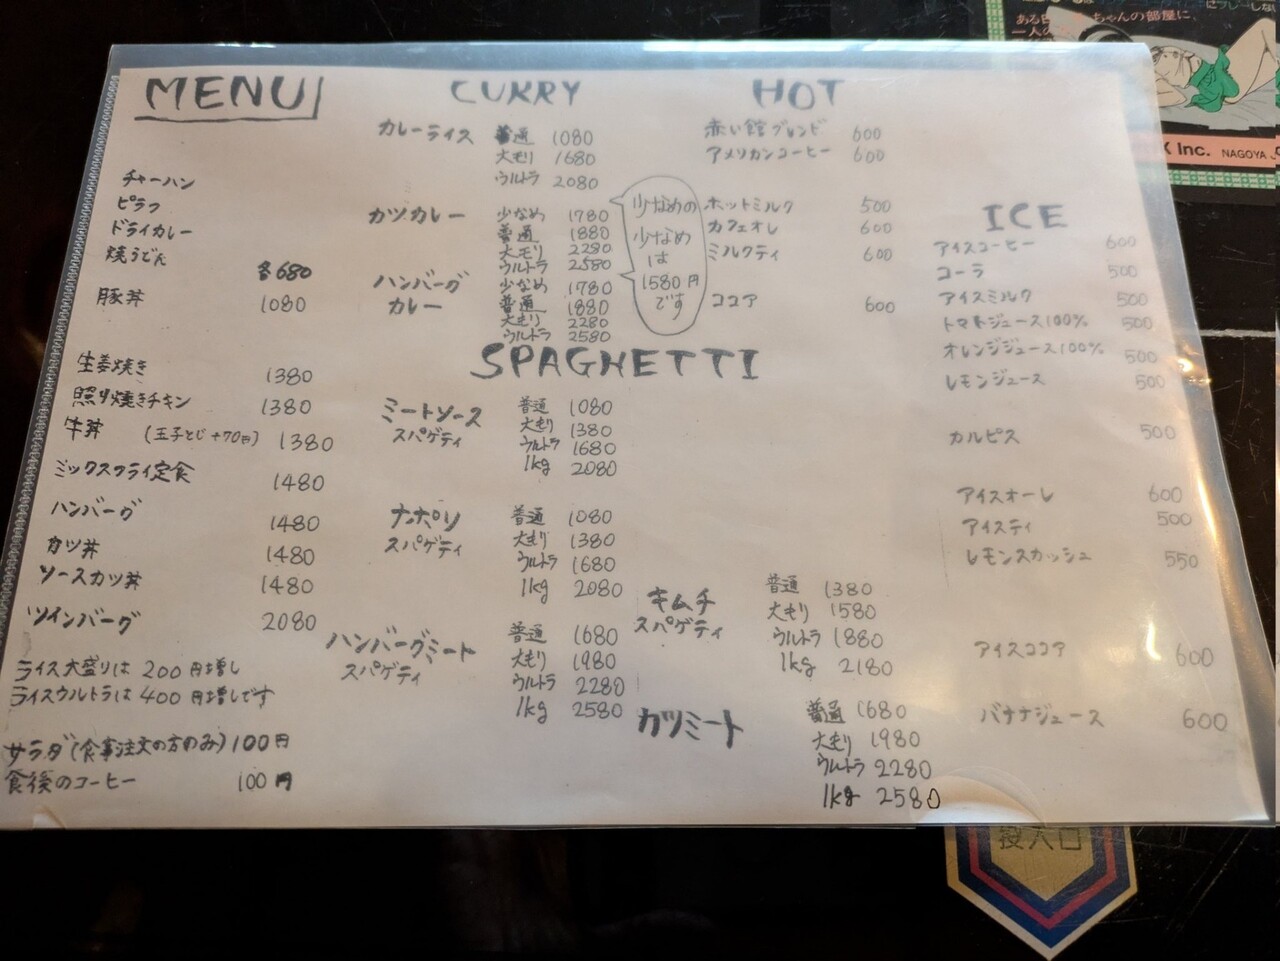 MENU
チャーハン
ピラフ
ドライカレー
焼うどん
各680
豚丼 1080
生姜焼き 1380
照り焼きチキン 1380
牛丼 (玉子とじ+70円) 1380
ミックスフライ定食 1480
ハンバーグ 1480
カツ丼 1480
ソースカツ丼 1480
ツインバーグ 2080
ライス大盛りは 200円増し
ライスウルトラは 400円増しです
サラダ(食事注文の方のみ)100円
食後のコーヒー 100円
CURRY
カレーライス 普通 1080
大もり 1680
ウルトラ 2080
カツカレー 少なめ 1780
普通 1880
大モリ 2280
ウルトラ 2580
ハンバーグ 少なめ 1780
カレー 普通 1880
大もり 2280
ウルトラ 2580
少なめの
少なめ
は
1580円
です
SPAGHETTI
ミートソース 普通 1080
スパゲティ 大もり 1380
ウルトラ 1680
1kg 2080
ナポリ 普通 1080
スパゲティ 大もり 1380
ウルトラ 1680
1kg 2080
ハンバーグミート 普通 1680
スパゲティ 大もり 1980
ウルトラ 2280
1kg 2580
キムチ 普通 1380
スパゲティ 大もり 1580
ウルトラ 1880
1kg 2180
カツミート 普通 1680
大もり 1980
ウルトラ 2280
1kg 2580
HOT
赤い館ブレンド 600
アメリカンコーヒー 600
ホットミルク 500
カフェオレ 600
ミルクティ 600
ココア 600
ICE
アイスコーヒー 600
コーラ 500
アイスミルク 500
トマトジュース100% 500
オレンジジュース100% 500
レモンジュース 500
カルピス 500
アイスオーレ 600
アイスティ 500
レモンスカッシュ 550
アイスココア 600
バナナジュース 600
ちゃんの部屋に、
一人の
Inc. NAGOYA
投入口